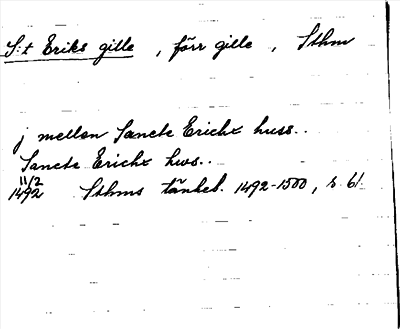 S:t Eriks gille, förr gille, Sthm
j mellan Sancte Erichx huss..
Sancte Erichx hws..
11/2
1492 Sthms tänkeb. 1492-1500, s. 61